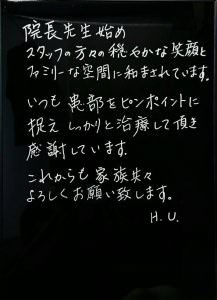 院長先生始め
スタッフの方々の穏やかな笑顔と
ファミリーな空間に和まされています。
いつも患部をピンポイントに
捉えしっかりと治療して頂き
感謝しています。
これからも家族共々
よろしくお願い致します。
H.U.